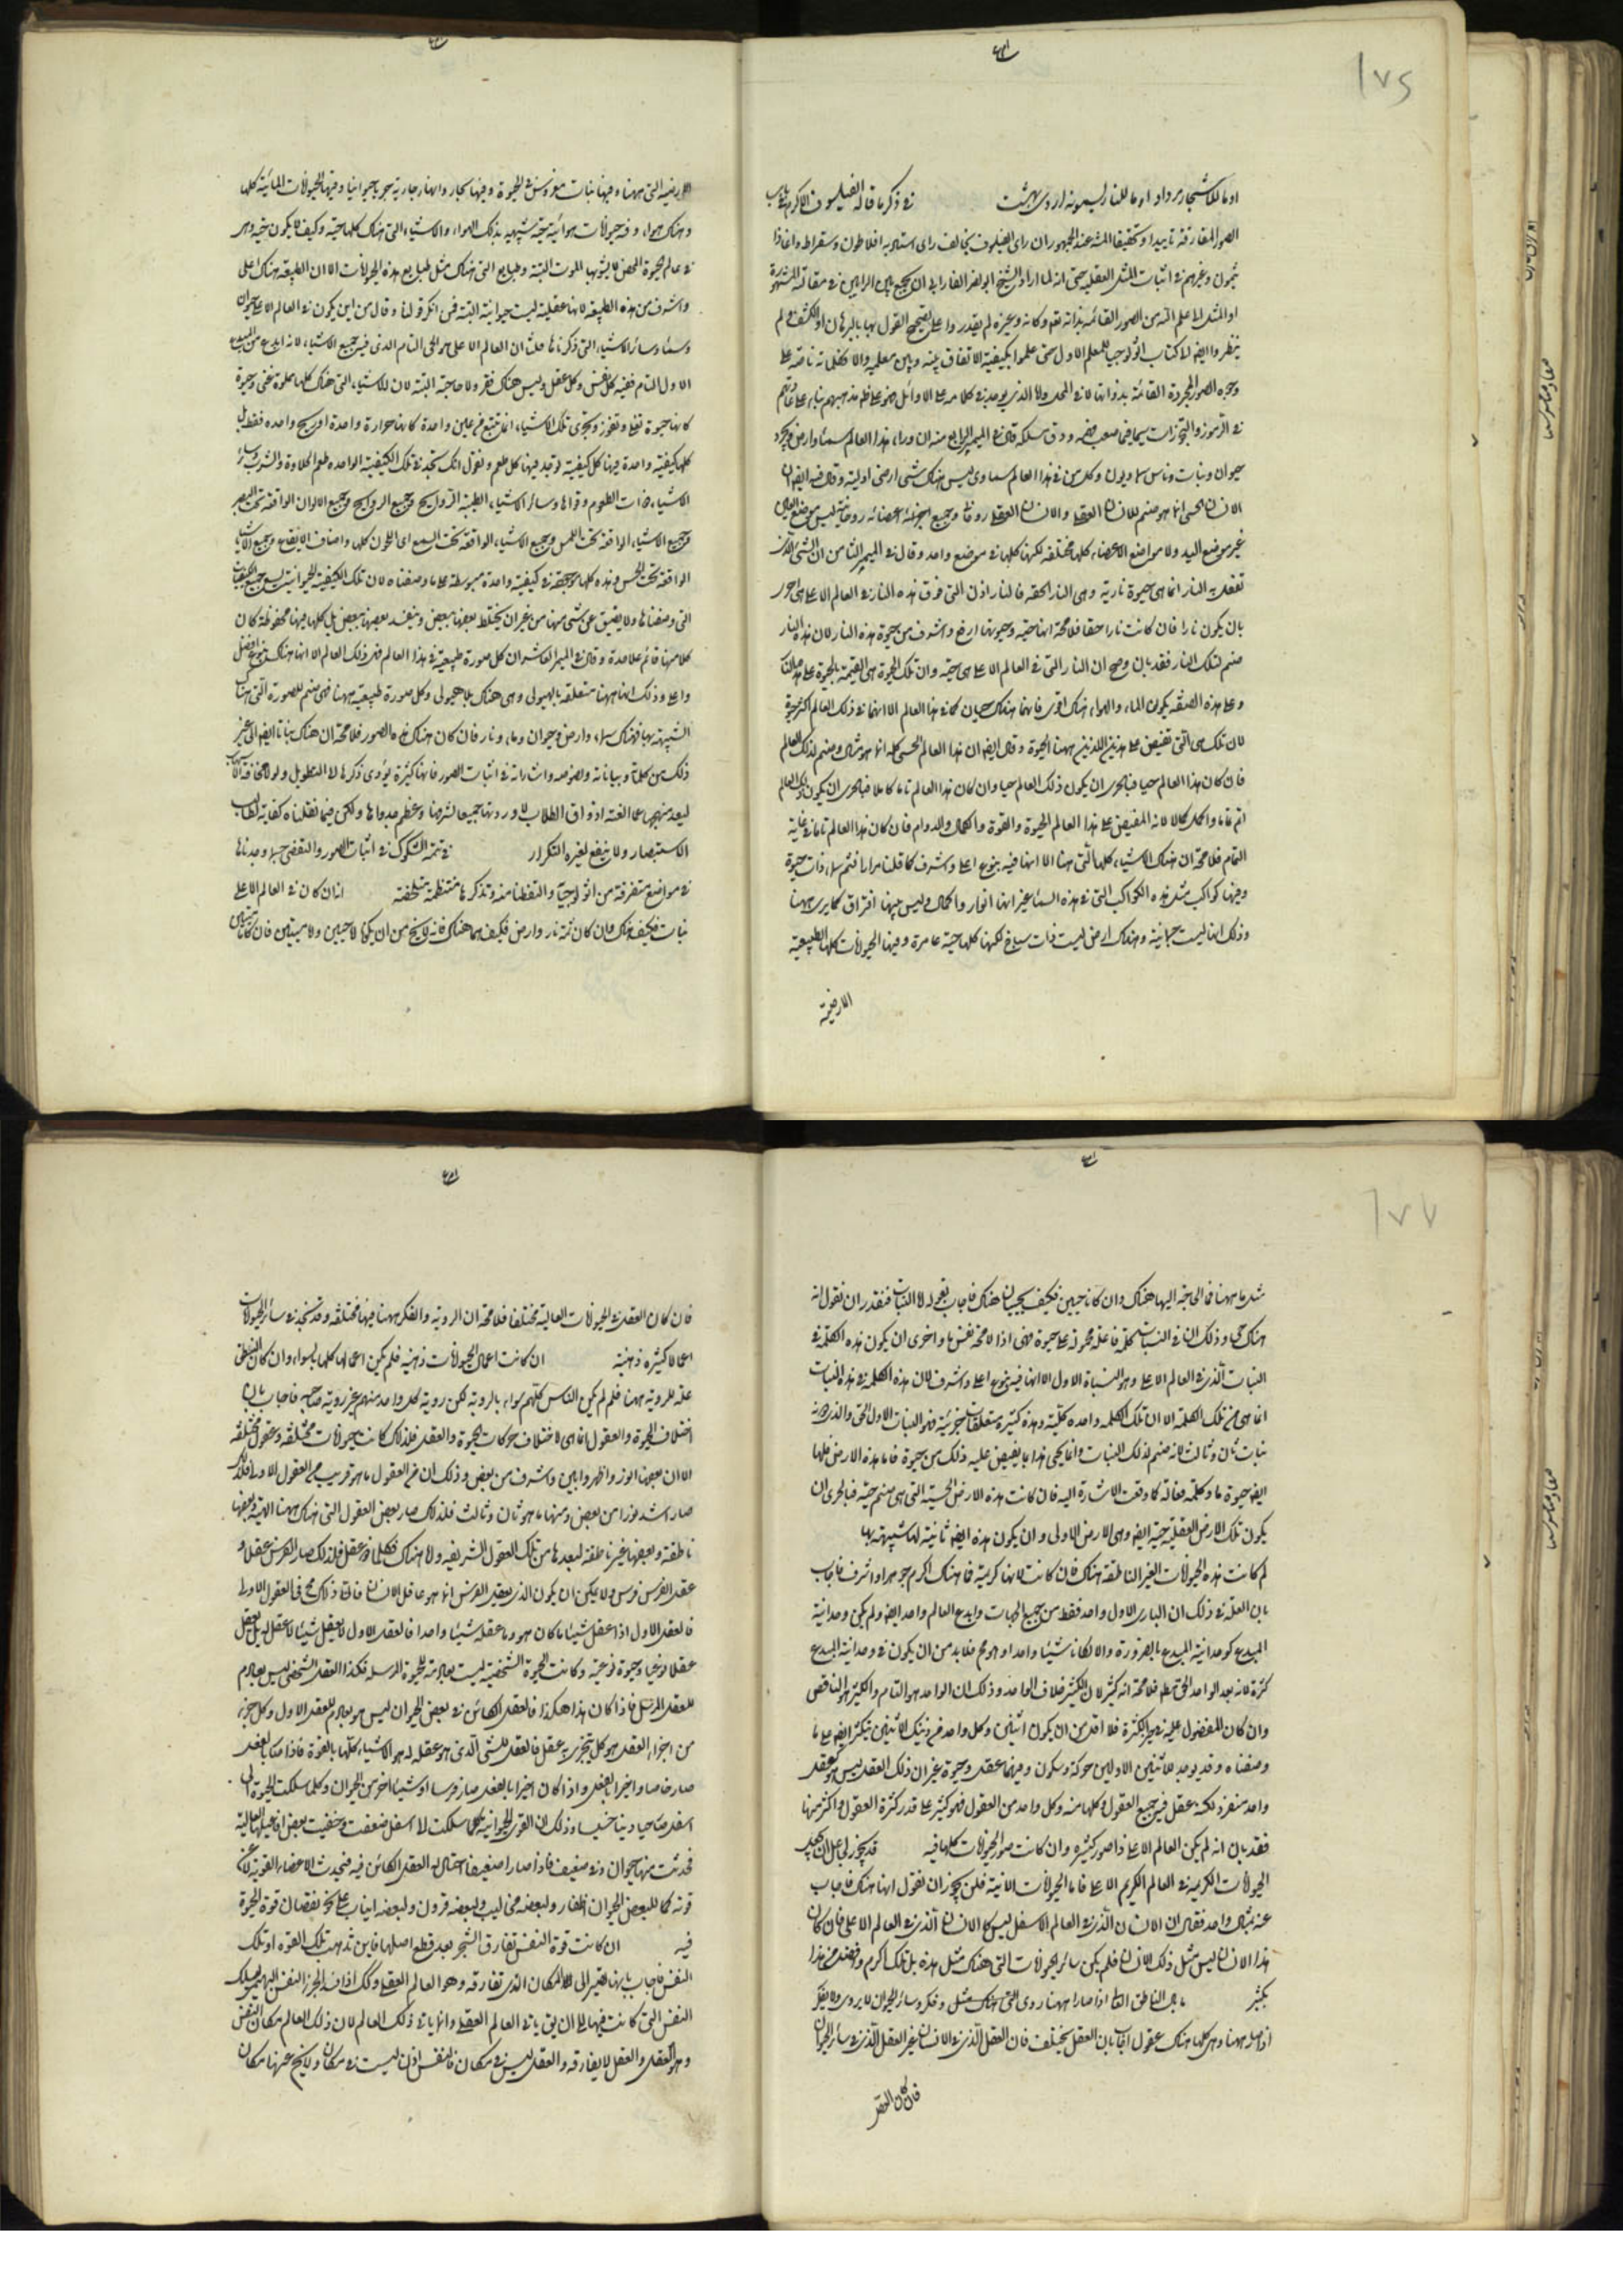 ١٧٤
اوما للاشجار مرداد اوما للنار ليسمونه اردى بهشت في ذكر ما قاله الفيلسوف الاكرم في باب
الصور المفارقة تاييدا وتحقيقا لما عند الجمهور ان راى الفيلسوف يخالف راى استاديه افلاطون وسقراط واغاثا
ذيمون وغيرهم في اثبات المثل العقلية حتى انه لما اراد الشيخ ابو نصر الفارابى ان يجمع بين الرايين في مقالته
اول المثل الى علم الله من الصور القائمة بذاته تعالى وكانه وغيره لم يقدروا على تصحيح القول بها بالبرهان او الكشف ولم
ينظروا ايضا الى كتاب اثولوجيا للمعلم الاول حتى علموا بكيفية الاتفاق بينه وبين معلميه والا فكلماته ناصة على
وجود الصور المجردة القائمة بذواتها لا في المحل
في الرموز والتجوزات سيما فيما صعب فهمه ودق مسلكه قال في الميمر الرابع منه ان وراء هذا العالم سماء وارض وبحر و
حيوان ونبات وناس سماويون وكل من في هذا العالم سماوى ليس هناك شئ ارضى اوليته وقال فيه ايضا ان
الانسان الحسى انما هو صنم للانسان العقلى والانسان العقلى روحانى وجميع اعضائه روحانية ليس موضع العين
غير موضع اليد ولا مواضع الاعضاء كلها مختلفة لكنها كلها في موضع واحد وقال في الميمر الثامن ان الشئ الذى
تفعل به النار انما هى حيوة نارية وهى النار الحقة فالنار اذن التى فوق هذه النار في العالم الاعلى هى احرى
بان يكون نارا فان كانت نارا حقا فلا محة انها حية وحيوتها ارفع واشرف من حيوة هذه النار لان هذه النار
صنم لتلك النار فقد بان وصح ان النار التى في العالم الاعلى هى حية وان تلك الحيوة هى القيمة بالحيوة على هذه النار
وعلى هذه الصفة يكون الماء والهواء هناك اقوى فانهما هناك حيان كما في هذا العالم الا انهما في ذلك العالم اكثر حيوة
لان تلك هى التى تفيض على هذين اللذين ههنا الحيوة وقال ايضا ان هذا العالم الحسى كله انما هو مثال وصنم لذلك العالم
فان كان هذا العالم حيا فبالحرى ان يكون ذلك العالم حيا وان كان هذا العالم تاما كاملا فبالحرى ان يكون ذلك العالم
اتم تماما واكمل كمالا لانه المفيض على هذا العالم الحيوة والقوة والكمال والدوام فان كان هذا العالم تاما في غاية
التمام فلا محة ان هناك الاشياء كلها التى هنا الا انها فيه بنوع اعلى واشرف كما قلنا مرارا فثم سماء ذات حيوة
وفيها كواكب مثل هذه الكواكب التى في هذه السماء غير انها انور واكمل وليس بينها افتراق كما يرى ههنا
وذلك انها ليست جسمانية وهناك ارض ليست ذات سباخ لكنها كلها حية عامرة وفيها الحيوانات كلها الطبيعية
الارضية
الارضية التى ههنا وفيها نبات مغروس في الحيوة وفيها بحار وانهار جارية جريا حيوانيا وفيها الحيوانات المائية كلها
وهناك هواء وفيه حيوانات هوائية حية شبيهة بذلك الهواء والاشياء التى هناك كلها حية وكيف لا يكون حية وهى
في عالم الحيوة المحض لا يشوبها الموت البتة وطبايع التى هناك مثل طبايع هذه الحيوانات الا ان الطبيعة هناك اعلى
واشرف من هذه الطبيعة لانها عقلية ليست حيوانية البتة فمن انكر قولنا وقال من اين يكون في العالم الاعلى حيوان
وسماء وسائر الاشياء التى ذكرناها قلنا ان العالم الاعلى هو الحى التام الذى فيه جميع الاشياء لانه ابدع من المبدع
الاول التام ففيه كل نفس وكل عقل وليس هناك فقر ولا حاجة البتة لان الاشياء التى هناك كلها مملوة غنى وحيوة
كانها حيوة تغلى وتفور وتجرى تلك الاشياء انما تنبع من عين واحدة لا كانها حرارة واحدة او ريح واحدة فقط بل
كلها كيفية واحدة فيها كل كيفية توجد فيها كل طعم ونقول انك تجد في تلك الكيفية الواحدة طعم الحلاوة والشراب وسائر
الاشياء ذات الطعوم وقواها وسائر الاشياء الطيبة الروايح وجميع الروايح وجميع الالوان الواقعة تحت البصر
وجميع الاشياء الواقعة تحت اللمس وجميع الاشياء الواقعة تحت السمع اى اللحون كلها واصناف الايقاع وجميع الاشياء
الواقعة تحت الحس وهذه كلها موجودة في كيفية واحدة مبسوطة على ما وصفناه لان تلك الكيفية الحيوانية
التى وصفناها ولا يضيق عن شئ منها من غير ان يختلط بعضها ببعض وينفسد بعضها ببعض بل كلها فيها محفوظة كان
كلا منها قائم على حدة وقال في الميمر العاشر ان كل صورة طبيعية في هذا العالم فهى في ذلك العالم الا انها هناك بنوع افضل
واعلى وذلك انها ههنا متعلقة بالهيولى وهى هناك بلا هيولى وكل صورة طبيعية ههنا فهى صنم للصورة التى هناك
الشبيهة بها فهناك سماء وارض وحيوان وماء ونار فان كان هناك هذه الصور فلا محة ان هناك نباتا ايضا الى غير
ذلك من كلماته وبياناته ونصوصه واشاراته في اثبات الصور فانها كثيرة يؤدى ذكرها الى التطويل ولولا مخافة الاسهاب
الاستبصار ولا ينفع لغيره التكرار في تتمة الشكوك في اثبات الصور والتفصى عنها وحدناها
في مواضع متفرقة من اثولوجيا والتقطنا منه وتذكرها منتظمة ملخصة ان كان في العالم الاعلى
نبات فكيف هناك وان كان ثمة نار وارض فكيف هما هناك فانه لا يخ من ان يكونا لا حيين ولا ميتين فان كانا ميتين
١٧٧
مثل ما ههنا فما الحاجة اليها هناك وان كانا حيين فكيف يحييان هناك فاجاب
هناك حى وذلك ان في النبات كلمة فاعلة محمولة على حيوة فهى اذا لا محة نفس ما واحرى ان يكون هذه الكلمة في
النبات الذى في العالم الاعلى وهو النبات الاول الا انها فيه بنوع اعلى واشرف لان هذه الكلمة في هذه النبات
انما هى من تلك الكلمة الا ان تلك الكلمة واحدة كلية وهذه كثيرة متعلقات جزئية فهو النبات الاول الحق والذى دونه
نبات ثان وثالث لانه صنم لذلك النبات وانما يحيى هذا بما يفيض عليه ذلك من حيوة فاما هذه الارض فلها
ايضا حيوة ما وكلمة فعالة كما وقعت الاشارة اليه فان كانت هذه الارض الحسية التى هى صنم حية فبالحرى ان
يكون تلك الارض العقلية حية ايضا وهى الارض الاولى وان يكون هذه ايضا ثانية لها شبيهة بها
لم كانت هذه الحيوانات الغير الناطقة هناك فان كانت لانها كريمة فما هناك اكرم جوهرا واشرف فاجاب
بان العلة في ذلك ان البارى الاول واحد فقط من جميع الجهات وابدع العالم واحدا ايضا ولم يكن وحدانية
المبدع كوحدانية المبدع بالضرورة والا لكانا شيئا واحدا وهو مح فلا بد من ان يكون في وحدانية المبدع
كثرة لانه بعد الواحد الحق فلا محة انه كثير لان الكثير خلاف الواحد وذلك ان الواحد هو التام والكثير هو الناقص
وان كان المفضول عليه في حيز الكثرة فلا اقل من ان يكون اثنين وكل واحد من ذينك الاثنين يتكثر ايضا على ما
وصفناه وقد يوجد للاثنين الاولين حركة وسكون وفيهما عقل وحيوة غير ان ذلك العقل ليس هو كعقل
واحد منفرد لكنه عقل فيه جميع العقول وكلها منه وكل واحد من العقول فهو كثير على قدر كثرة العقول واكثر منها
فقد بان انه لم يكن العالم الاعلى ذا صور كثيرة وان كانت صور الحيوانات كلها فيه
الحيوانات الكريمة في العالم الكريم الاعلى فاما الحيوانات الدنية فلن يجوز ان نقول انها هناك فاجاب
عنه بمثال واحد فقال ان الانسان الذى في العالم الاسفل ليس كالانسان الذى في العالم الاعلى فان كان
هذا الانسان ليس مثل ذلك الانسان فلم يكن سائر الحيوانات التى هناك مثل هذه بل تلك اكرم وافضل من هذا
بكثير ما بال الناطق العالى اذا صار ههنا روى التى هناك مثل وفكر وسائر الحيوان لا يروى ولا يفكر
اذا صار ههنا وهى كلها هناك عقول اجاب بان العقل يختلف فان العقل الذى في الانسان غير العقل الذى في سائر الحيوان
فان كان العقل
فان كان العقل في الحيوانات العالية مختلفا فلا محة ان الروية والفكر ههنا فيها مختلفة وقد نجد في سائر الحيوانات
اعمالا كثيرة ذهنية ان كانت اعمال الحيوانات ذهنية فلم لم يكن اعمالها كلها بالسواء وان كان المنطق
علة للروية ههنا فلم لم يكن الناس كلهم سواء بالروية لكن روية كل واحد منهم غير روية صاحبه فاجاب بان
اختلاف الحيوة والعقول انما هى لاختلاف حركات الحيوة والعقل فلذلك كانت حيوانات مختلفة وعقول مختلفة
الا ان بعضها انور واظهر وابين واشرف من بعض وذلك ان من العقول ما هو قريب من العقول الاولى فلذلك
صار اشد نورا من بعض ومنها ما هو ثان وثالث فلذلك صار بعض العقول التى هناك ههنا الهية وبعضها
ناطقة وبعضها غير ناطقة لبعدها من تلك العقول الشريفة واما هناك فكلها ذو عقل فلذلك صار الفرس عقلا و
عقل الفرس فرس ولا يمكن ان يكون الذى يعقل الفرس انما هو عاقل الانسان فان ذلك مح في العقول الاولى
فالعقل الاول اذا عقل شيئا ما كان هو وما عقله شيئا واحدا فالعقل الاول لا يعقل شيئا لا عقل له بل يعقل
عقلا نوعيا وحيوة نوعية وكانت الحيوة الشخصية ليست بعادمة للحيوة المرسلة فكذا العقل الشخصى ليس بعادم
للعقل المرسل فاذا كان هذا هكذا فالعقل الكائن في بعض الحيوان ليس هو بعادم للعقل الاول وكل جزء
من اجزاء العقل هو كل يتجزى به عقل فالعقل للشئ الذى هو عقله له هو الاشياء كلها بالقوة فاذا صار بالفعل
صار خاصا واخيرا بالفعل واذا كان اخيرا بالفعل صار فرسا او شيئا اخر من الحيوان وكلما سلكت الحيوة الى
اسفل صار حيا دنيا خسيسا وذلك ان القوى الحيوانية كلما سلكت الى اسفل ضعفت وخفيت بعض افاعيلها العالية
فحدث منها حيوان دنى ضعيف فاذا صار ضعيفا احتال له العقل الكائن فيه فيحدث الاعضاء القوية
قوته كما لبعض الحيوان اظفار ولبعضه مخاليب ولبعضه قرون ولبعضه انياب على نحو نقصان قوة الحيوة
فيه ان كانت قوة النفس تفارق الشجر بعد قطع اصلها فاين تذهب تلك القوة او تلك
النفس فاجاب بانها تصير الى المكان الذى تفارقه وهو العالم العقلى وكذلك اذا فسد الجزء النفس البهيمى يسلك
النفس التى كانت فيها الى ان ياتى العالم العقلى وانما ياتى ذلك العالم لان ذلك العالم مكان النفس
وهو العقل والعقل لا يفارقه والعقل ليس في مكان فالنفس اذن ليست في مكان ولا يخ عنها مكان